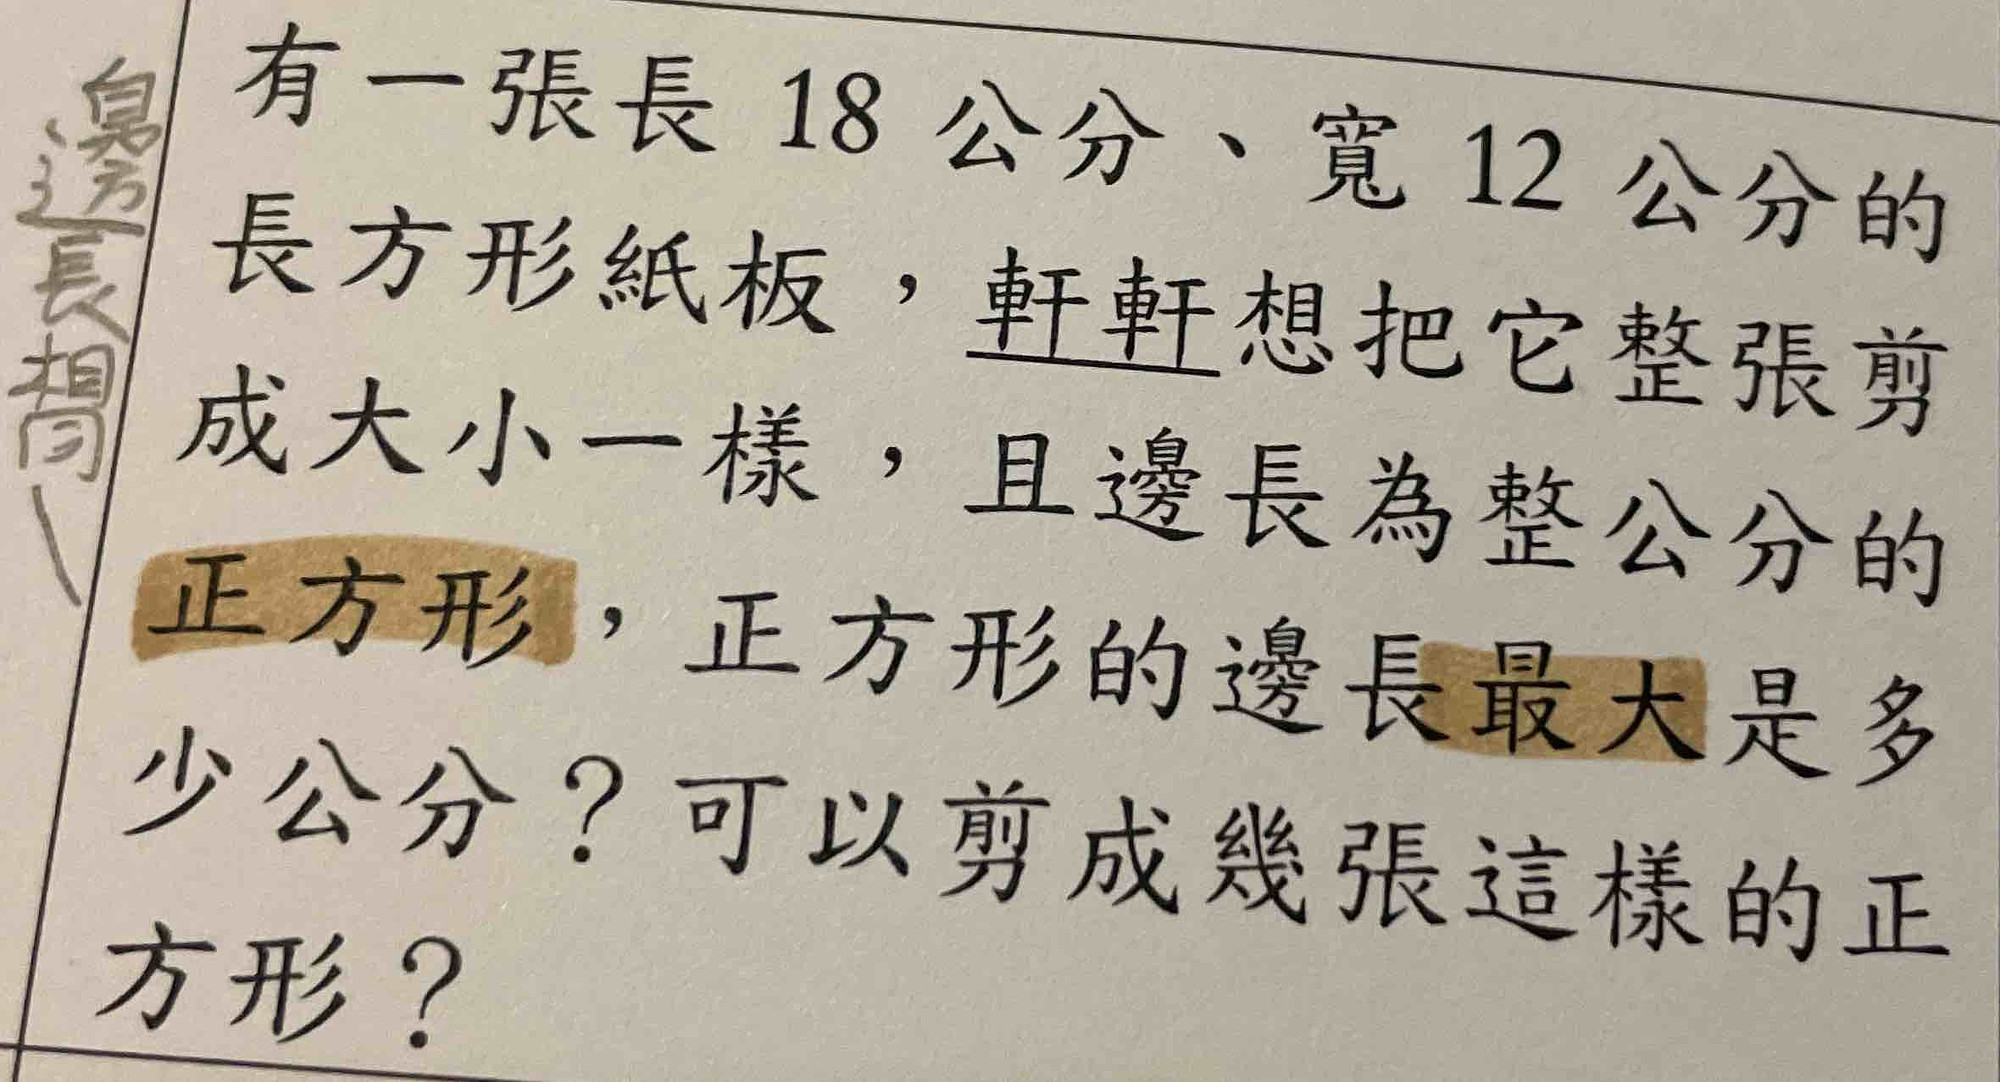 邊長相同
有一張長 18 公分、寬 12 公分的
長方形紙板，軒軒想把它整張剪
成大小一樣，且邊長為整公分的
正方形，正方形的邊長最大是多
少公分？可以剪成幾張這樣的正
方形？